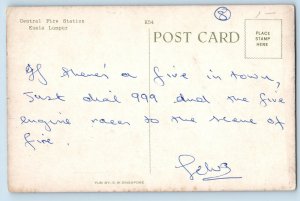 Central Fire Station
Kuala Lumpur
K54
8
POST CARD
PLACE
STAMP
HERE
If there's a fire in town,
Just dial 999 and the fire
engine races to the scene of
fire.
PUB BY. S.W SINGAPORE